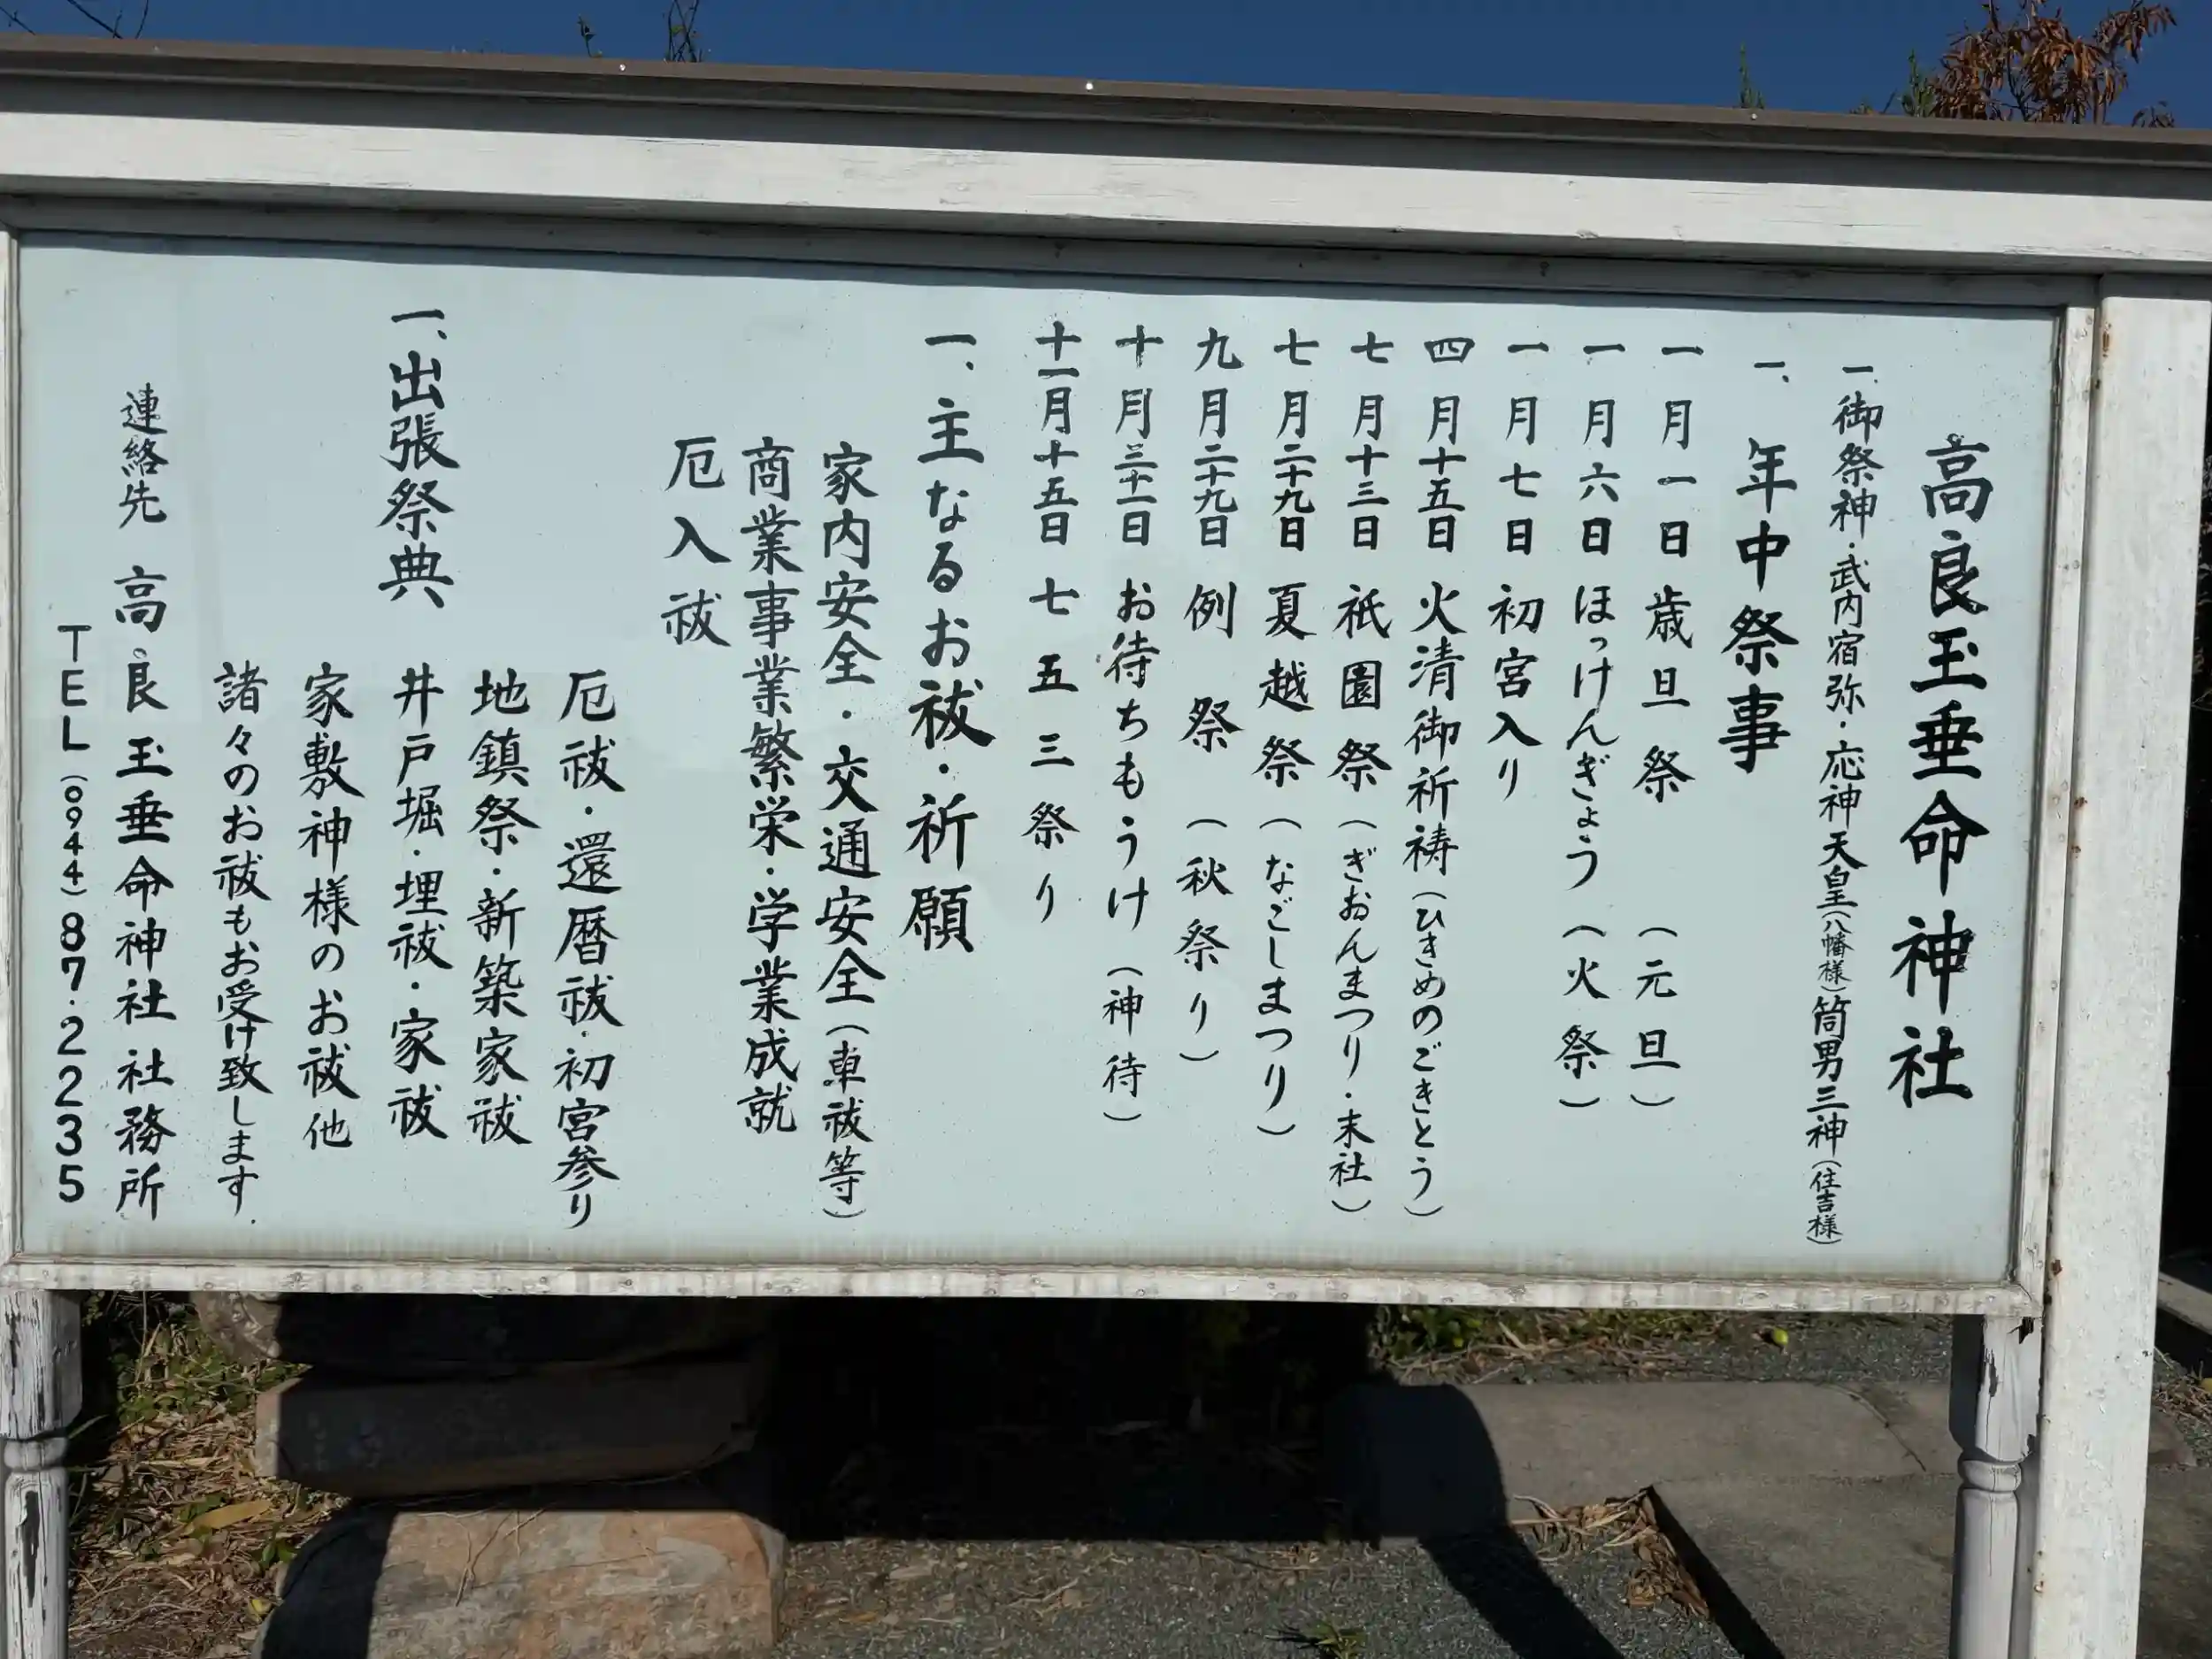 高良玉垂命神社
一、御祭神・武内宿弥・応神天皇（八幡様）筒男三神（住吉様）
一、年中祭事
一月一日 歳旦祭 （元旦）
一月六日 ほっけんぎょう （火祭）
一月七日 初宮入り
四月十五日 火清御祈祷（ひきめのごきとう）
七月十三日 祇園祭（ぎおんまつり・末社）
七月二十九日 夏越祭（なごしまつり）
九月二十九日 例祭（秋祭り）
十月三十一日 お待ちもうけ（神待）
十一月十五日 七五三祭り
一、主なるお祓・祈願
家内安全・交通安全（車祓等）
商業事業繁栄・学業成就
厄入祓
厄祓・還暦祓・初宮参り
一、出張祭典 地鎮祭・新築家祓
井戸堀・埋祓・家祓
家敷神様のお祓他
諸々のお祓もお受け致します.
連絡先 高良玉垂命神社社務所
TEL（0944）87・2235